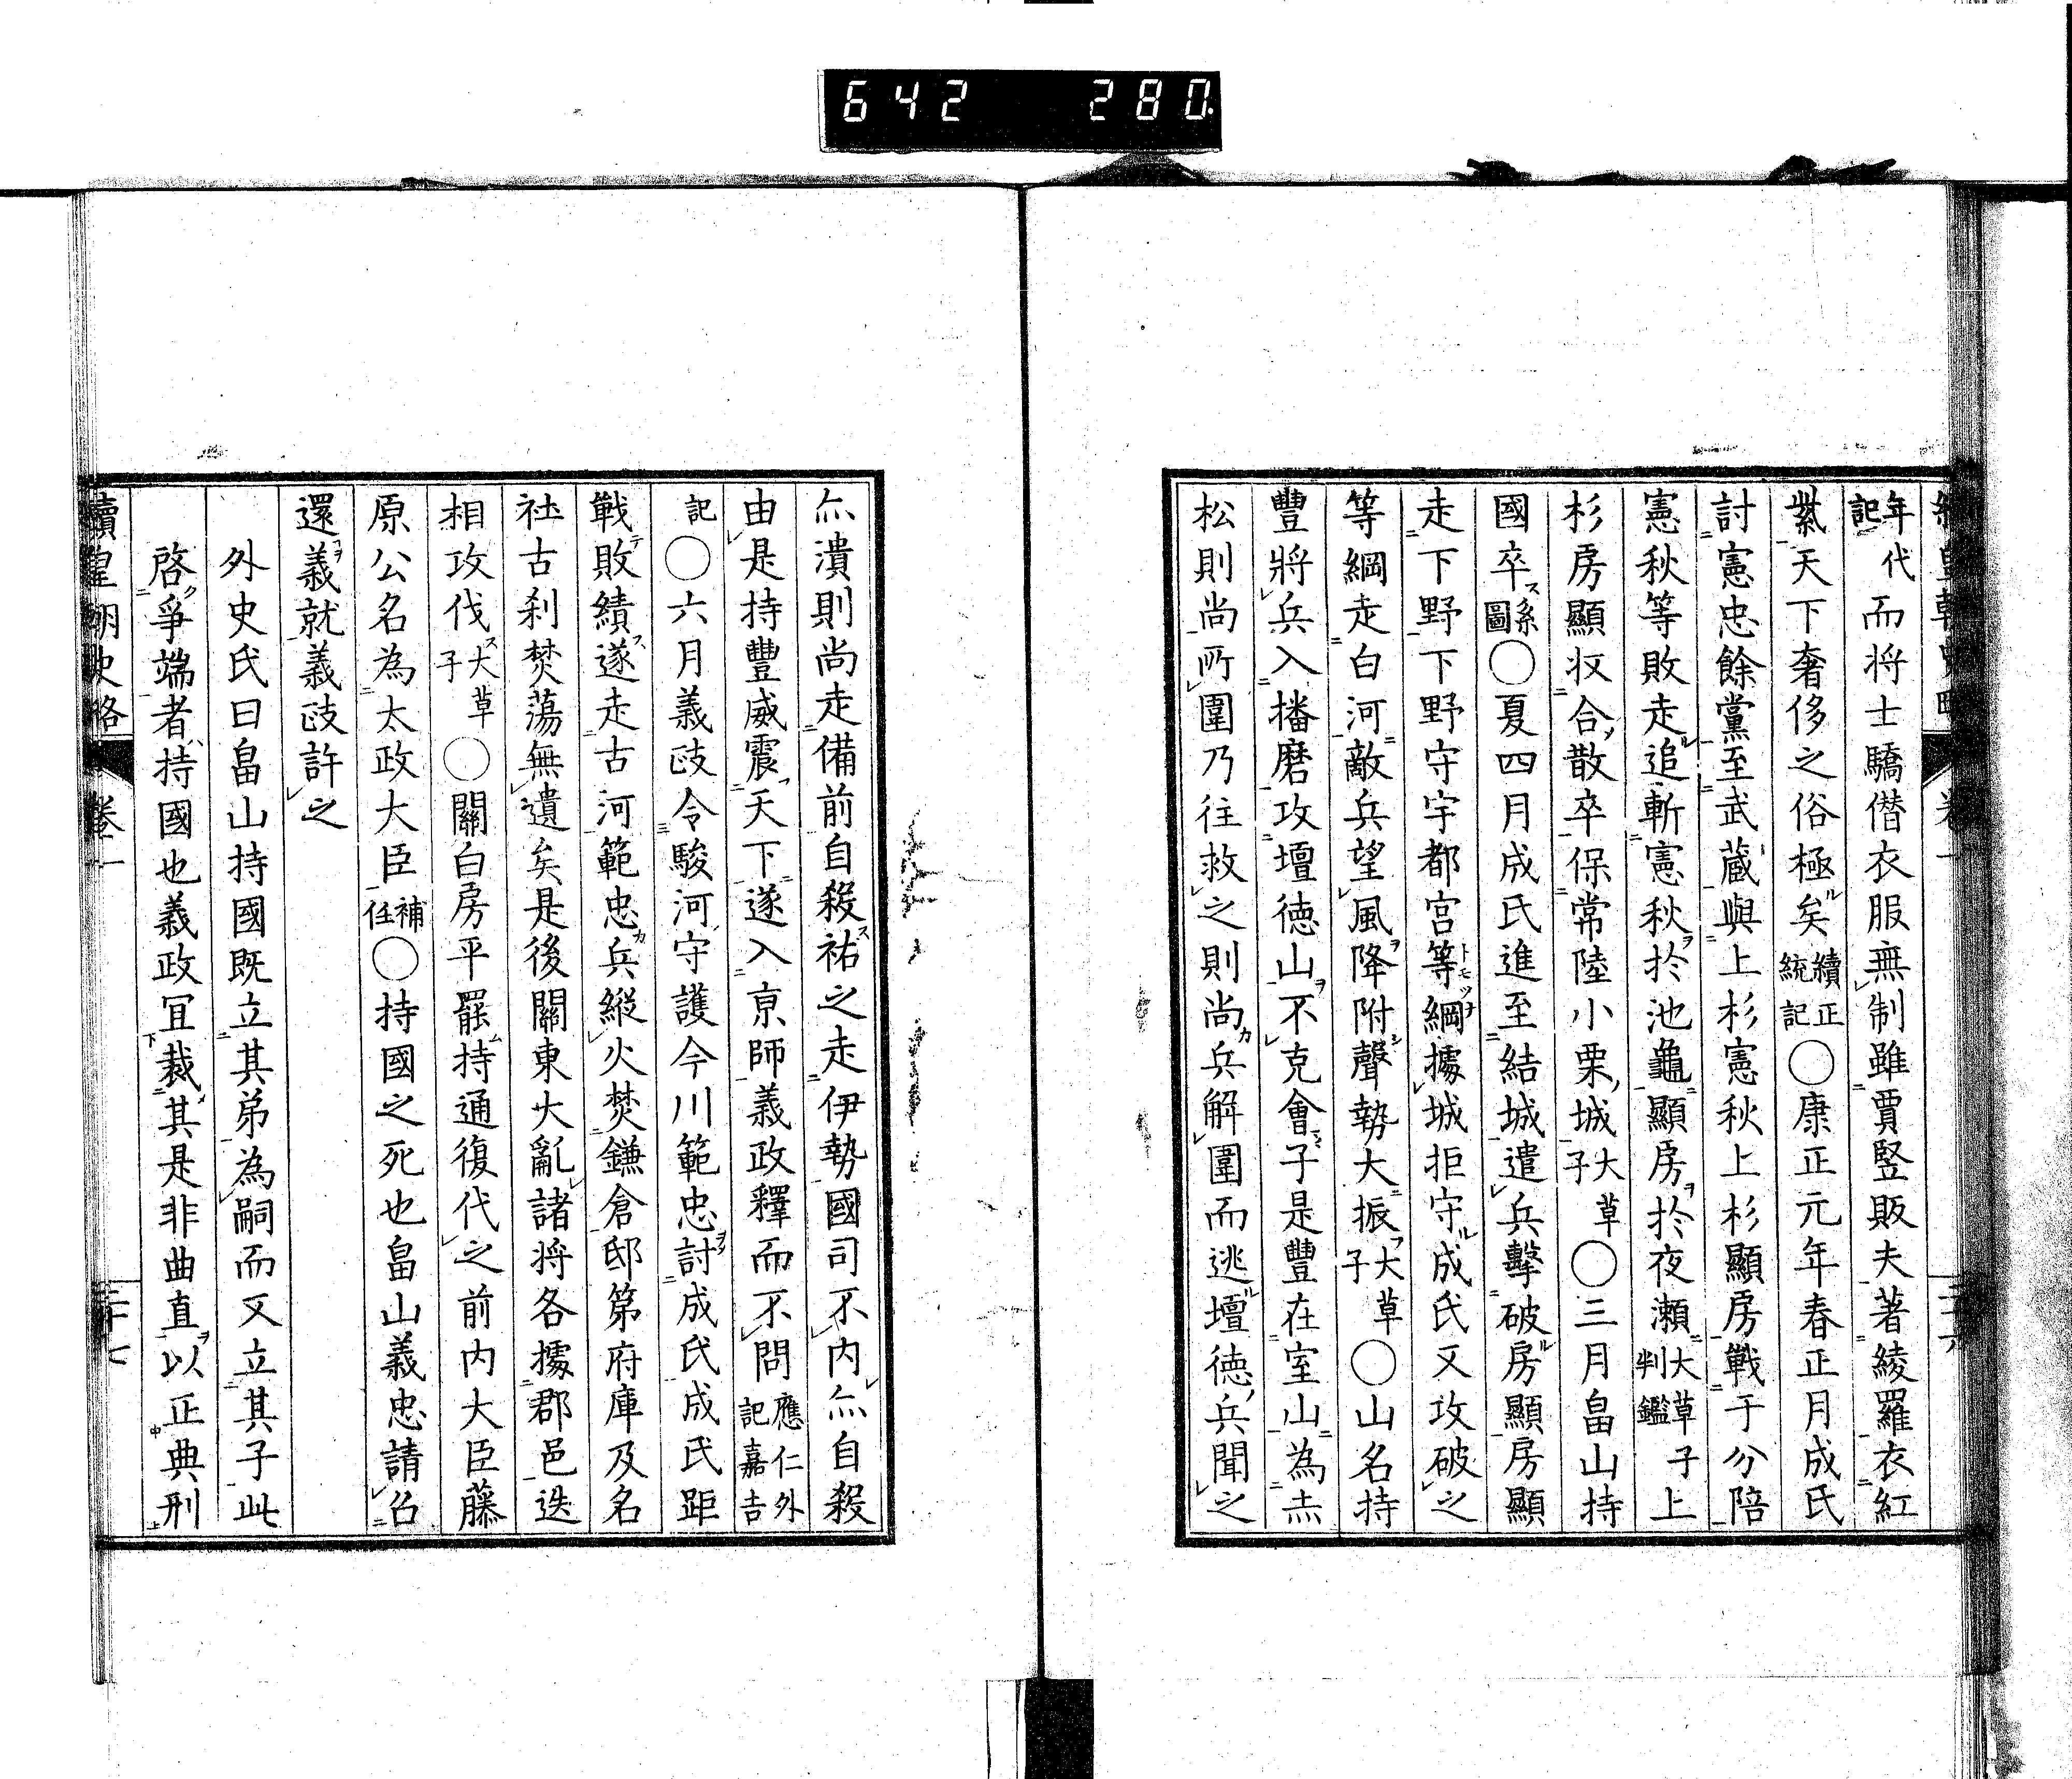 642 280
續皇朝史略 卷一 二十六
年代記而将士驕僭衣服無制雖賈竪販夫著綾羅衣紅
紫天下奢侈之俗極矣續正統記〇康正元年春正月成氏
討憲忠餘黨至武藏與上杉憲秋上杉顯房戰于分陪
憲秋等敗走追斬憲秋於池龜顯房於夜瀬大草子判鑑上
杉房顯收合散卒保常陸小栗城大草子〇三月畠山持
國卒系圖〇夏四月成氏進至結城遣兵擊破房顯房顯
走下野下野守宇都宮等綱據城拒守成氏又攻破之
等綱走白河敵兵望風降附聲勢大振大草子〇山名持
豐將兵入播磨攻壇德山不克會子是豐在室山為赤
松則尚所圍乃往救之則尚兵解圍而逃壇德兵聞之
亦潰則尚走備前自殺祐之走伊勢國司不内亦自殺
由是持豐威震天下遂入京師義政釋而不問應仁外記嘉吉
記〇六月義政令駿河守護今川範忠討成氏成氏距
戰敗績遂走古河範忠兵縱火焚鎌倉邸第府庫及名
社古刹焚蕩無遺矣是後關東大亂諸将各據郡邑迭
相攻伐大草子〇關白房平罷持通復代之前内大臣藤
原公名為太政大臣補任〇持國之死也畠山義忠請召
還義就義政許之
外史氏曰畠山持國既立其弟為嗣而又立其子此
啓爭端者持國也義政宜裁其是非曲直以正典刑
續皇朝史略 卷一 二十七